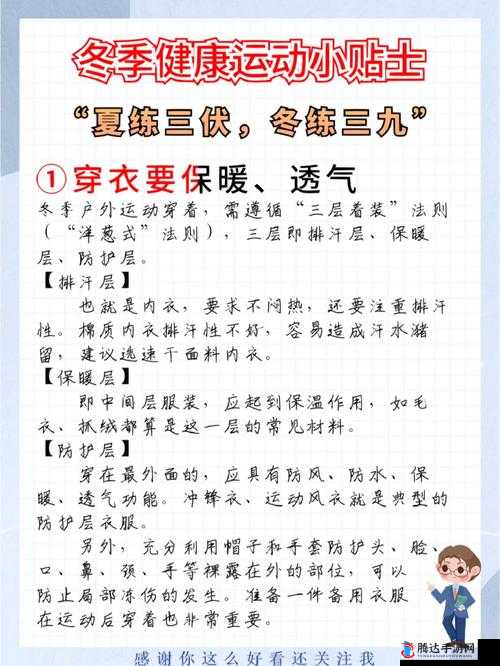 冬季健康运动小贴士
“夏练三伏，冬练三九”
①穿衣要保暖、透气
冬季户外运动穿着，需遵循“三层着装”法则
（“洋葱式”法则），三层即排汗层、保暖
层、防护层。
【排汗层】
也就是内衣，要求不闷热，还要注重排汗
性。棉质内衣排汗性不好，容易造成汗水潴
留，建议选速干面料内衣。
【保暖层】
即中间层服装，应起到保温作用，如毛
衣、抓绒都算是这一层的常见材料。
【防护层】
穿在最外面的，应具有防风、防水、保
暖、透气功能。冲锋衣、运动风衣就是典型的
防护层衣服。
另外，充分利用帽子和手套防护头、脸、
口、鼻、颈、手等裸露在外的部位，可以
防止局部冻伤的发生。准备一件备用衣服
在运动后穿着也非常重要。
感谢你这么好看还关注我
腾达手游网